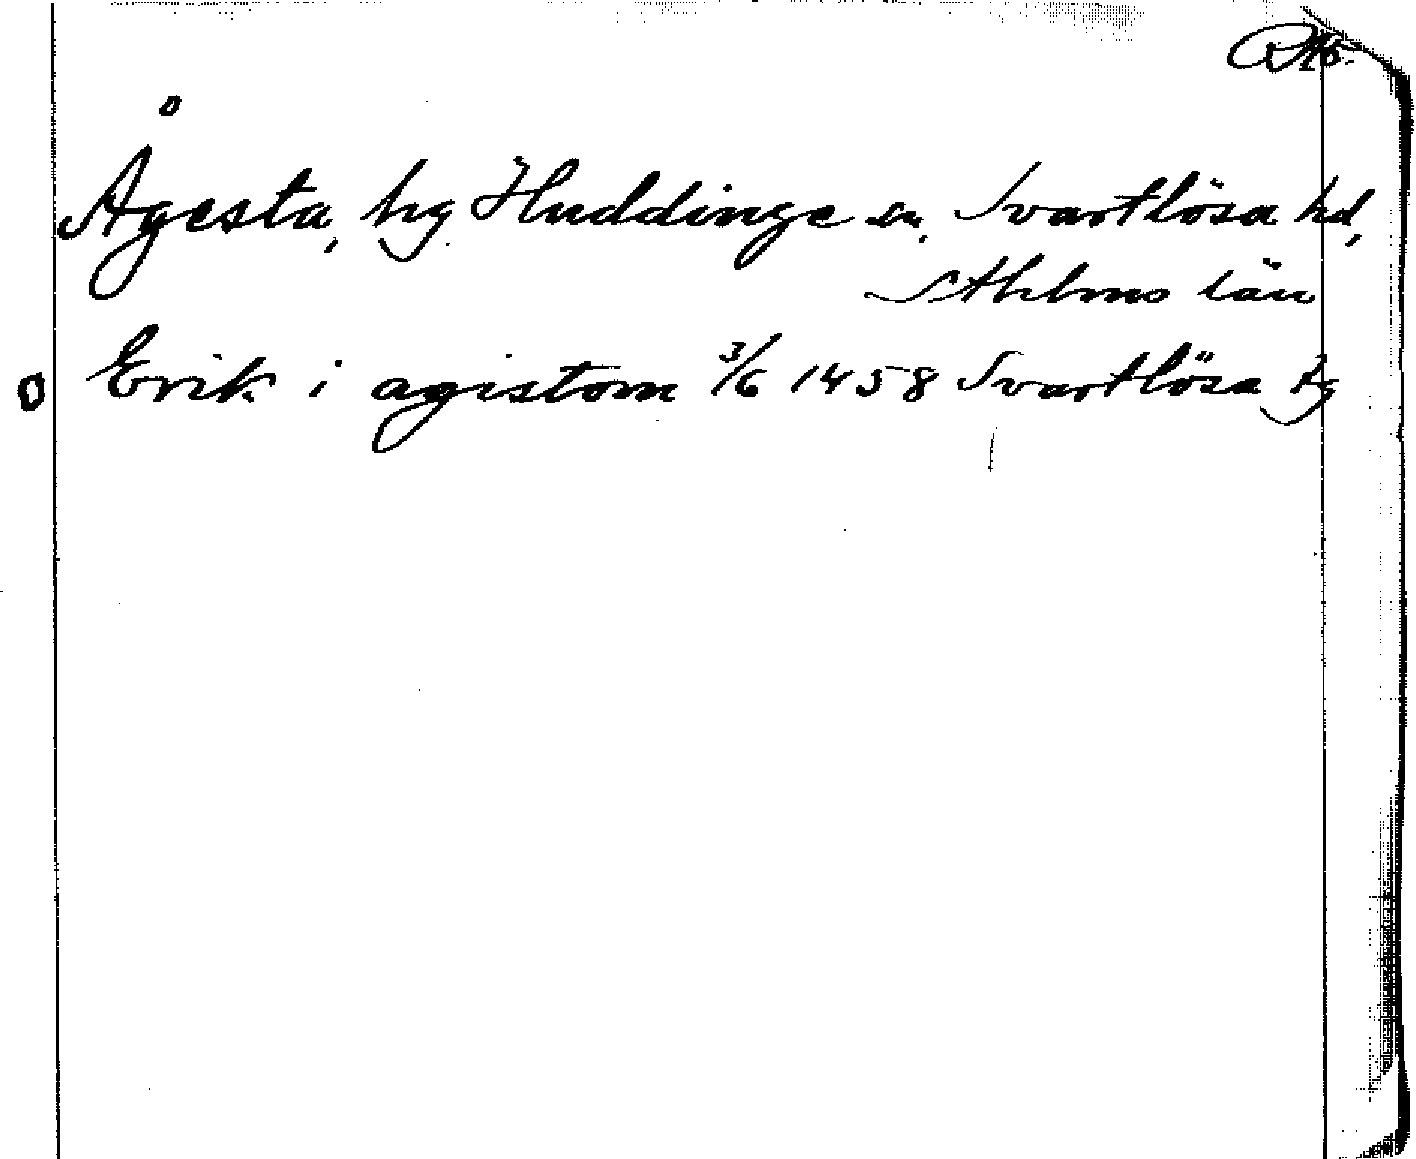 Ågesta, by Huddinge sn, Svartlösa hd,
Sthlms län
O Erik i agistom 3/6 1458 Svartlösa tg